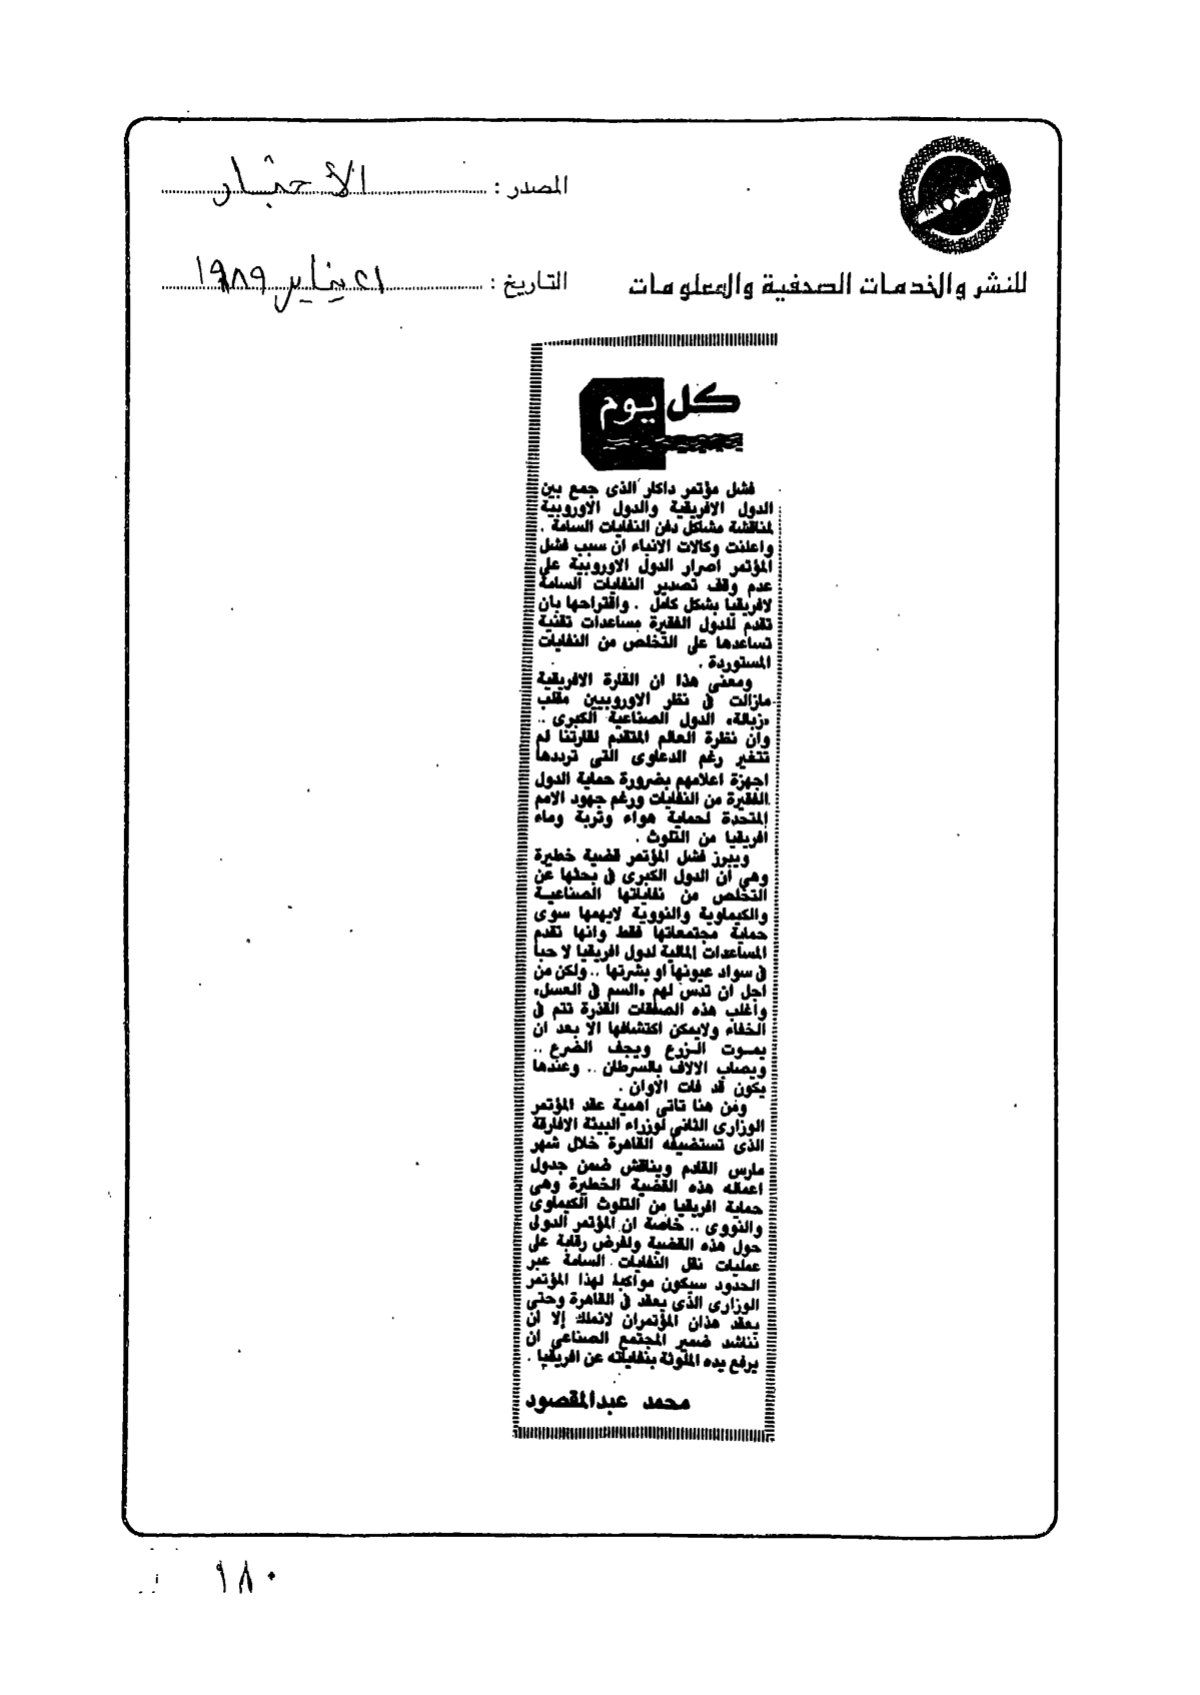 المصدر : الأخبار
للنشر والخدمات الصحفية والمعلومات
التاريخ : ٢١ يناير ١٩٨٩
كل يوم
فشل مؤتمر داكار الذى جمع بين
الدول الافريقية والدول الاوروبية
لمناقشة مشاكل دفن النفايات السامة .
واعلنت وكالات الانباء ان سبب فشل
المؤتمر اصرار الدول الاوروبية على
عدم وقف تصدير النفايات السامة
لافريقيا بشكل كامل . واقتراحها بان
تقدم للدول الفقيرة مساعدات تقنية
تساعدها على التخلص من النفايات
المستوردة .
ومعنى هذا ان القارة الافريقية
مازالت فى نظر الاوروبيين مقلب
«زبالة» الدول الصناعية الكبرى ..
وان نظرة العالم المتقدم لقارتنا لم
تتغير رغم الدعاوى التى ترددها
اجهزة اعلامهم بضرورة حماية الدول
الفقيرة من النفايات ورغم جهود الامم
المتحدة لحماية هواء وتربة وماء
افريقيا من التلوث .
ويبرز فشل المؤتمر قضية خطيرة
وهى أن الدول الكبرى فى بحثها عن
التخلص من نفاياتها الصناعية
والكيماوية والنووية لايهمها سوى
حماية مجتمعاتها فقط وانها تقدم
المساعدات المالية لدول افريقيا لا حبا
فى سواد عيونها او بشرتها .. ولكن من
اجل ان تدس لهم «السم فى العسل»
وأغلب هذه الصفقات القذرة تتم فى
الخفاء ولايمكن اكتشافها الا بعد ان
يموت الزرع ويجف الضرع ..
ويصاب الالاف بالسرطان .. وعندها
يكون قد فات الاوان .
ومن هنا تأتى اهمية عقد المؤتمر
الوزارى الثانى لوزراء البيئة الافارقة
الذى تستضيفه القاهرة خلال شهر
مارس القادم ويناقش ضمن جدول
اعماله هذه القضية الخطيرة وهى
حماية افريقيا من التلوث الكيماوى
والنووى .. خاصة ان المؤتمر الدولى
حول هذه القضية ولفرض رقابة على
عمليات نقل النفايات السامة عبر
الحدود سيكون مواكبا لهذا المؤتمر
الوزارى الذى يعقد فى القاهرة وحتى
يعقد هذان المؤتمران لانملك إلا أن
نناشد ضمير المجتمع الصناعى ان
يرفع يده الملوثة بنفاياته عن افريقيا .
محمد عبدالمقصود
٩٨٠